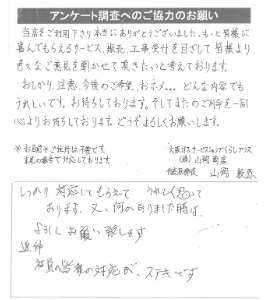 アンケート調査へのご協力のお願い
当店をご利用下さり本当にありがとうございました。もっと皆様に
喜んでもらえるサービス、販売、工事受付を目ざして皆様より
色々なご意見を聞かせて頂きたいと考えております。
おしかり、注意、今後のご希望、おホメ... どんな内容でも
うれしいです。お待ちしております。そしてまたのご用命を一同
心よりお待ちしております。どうぞよろしくお願いします。
大阪ガスサービスショップ
(株)山岡商店
代表取締役 山岡
しっかり対応してもらえて うれしく思って
おります。又、何かありました時は、
よろしくお願い致します
追伸
社員の皆様の対応が、ステキです